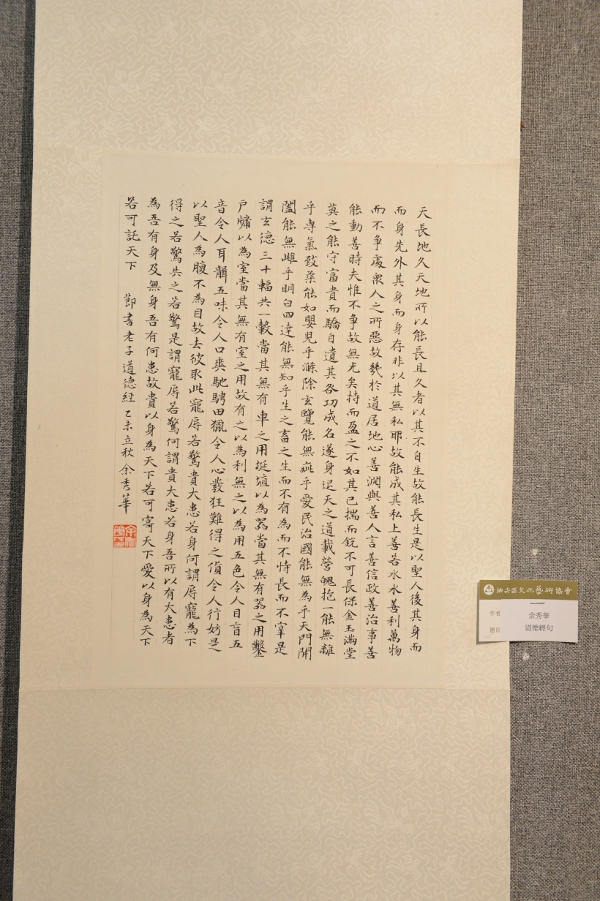 天長地久天地所以能長且久者以其不自生故能長生是以聖人後其身而
而身先外其身而身存非以其無私耶故能成其私上善若水水善利萬物
而不爭處衆人之所惡故幾於道居地心善淵與善人言善信政善治事善
能動善時夫惟不爭故無尤矣持而盈之不如其已揣而銳不可長保金玉滿堂
莫之能守富貴而驕自遺其咎功成名遂身退天之道載營魄抱一能無離
乎專氣致柔能如嬰兒乎滌除玄覽能無疵乎愛民治國能無為乎天門開
闔能無雌乎明白四達能無知乎生之畜之生而不有為而不恃長而不宰是
謂玄德三十輻共一轂當其無有車之用埏埴以為器當其無有器之用鑿
戶牖以為室當其無有室之用故有之以為利無之以為用五色令人目盲五
音令人耳聾五味令人口爽馳騁田獵令人心發狂難得之貨令人行妨是
以聖人為腹不為目故去彼取此寵辱若驚貴大患若身何謂辱寵為下
得之若驚失之若驚是謂寵辱若驚何謂貴大患若身吾所以有大患者
為吾有身及無身吾有何患故貴以身為天下若可寄天下愛以身為天下
若可託天下 節書老子道德經 乙未立秋 余秀華
文化藝術協會
作者 余秀華
題目 道德經句